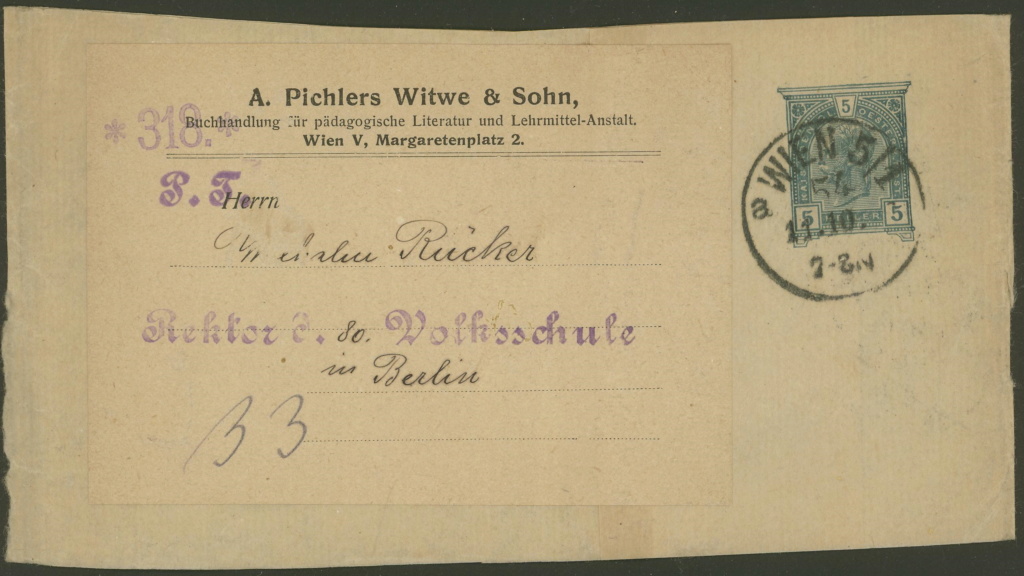 A. Pichlers Witwe & Sohn,
* 318. *
Buchhandlung für pädagogische Literatur und Lehrmittel-Anstalt.
Wien V, Margaretenplatz 2.
P. T.
Herrn
Rücker
Rektor d. 80. Volksschule
in Berlin
33
5
5 5
WIEN 5/1
54
11.10.
7-8N
a